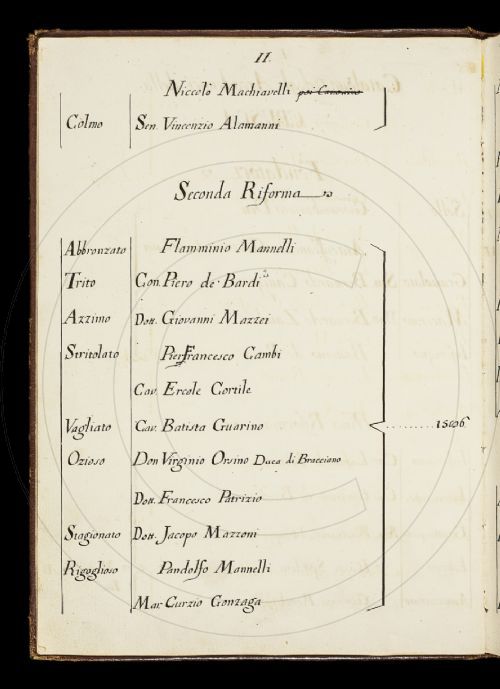 II.
Niccolò Machiavelli poi Canonico
Colmo Sen. Vincenzio Alamanni
Seconda Riforma
Abbronzato Flamminio Mannelli
Trito Con. Piero de' Bardi
Azzimo Dott. Giovanni Mazzei
Stritolato Pierfrancesco Cambi
Cav. Ercole Cortile
Vagliato Cav. Batista Guarino
Ozioso Don Virginio Orsino Duca di Bracciano
Dott. Francesco Patrizio
Stagionato Dott. Jacopo Mazzoni
Rigoglioso Pandolfo Mannelli
Mar. Curzio Gonzaga